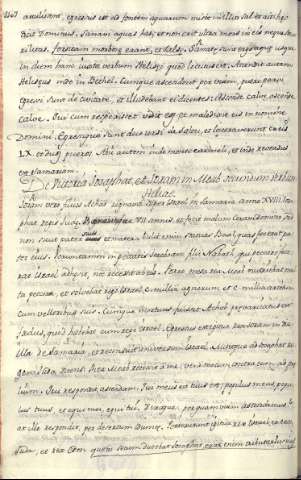 egressus est ad fontem aquarum misit in illum sal et ait: hęc
dicit Dominus. Sanavi aquas has, et non erit ultra mors in eis neque ste-
rilitas.
in diem hanc iuxta verbum Helisei quod locutus est. Ascendit autem
Heliseus inde in Bethel. Cumque ascenderet per viam, pueri parvi
egressi sunt de civitate, et illudebant ei dicentes: Ascende calve, ascende
calve. Qui cum respexisset vidit eos, et maledixit eis in nomine
Domini. Egressique sunt duo ursi de saltu, et laceraverunt ex eis
XL et duos pueros. Abiit autem inde in montem Carmeli, et inde reversus
est in Samariam.
De Victoria Josaphat, et Joram in Moab secundum verbum
Heliseae.
Joram vero filius Achab regnavit super Israel in Samaria anno XVIII Josa-
phat regis Juda. Regnavitque XII annis et fecit malum coram Domino sed
non sicut pater suus et mater. Tulit enim statuas Baal, quas fecerat pa-
ter eius. Verumtamen in peccatis Jeroboam filii Nabath, qui peccare fecit
Israel adhesit, nec recessit ab eis. Porro Mesa rex Moab nutriebat mul-
ta pecora, et solvebat regi Israel C millia agnorum et C millia arietum
cum velleribus suis. Cumque mortuus fuisset Achab prævaricatus est
fędus, quod habebat cum rege Israel. Egressus est rex Joram in die
illa de Samaria, et recensuit universum Israel. Misitque ad Josaphat re-
gem Juda dicens: Rex Moab recessit a me, veni mecum contra eum ad prę-
lium. Qui respondit, ascendam. Qui meus est tuus est, populus meus, popu-
lus tuus, et equi mei, equi tui. Dixitque, per quam viam ascendemus?
et ille respondit, per desertum Idumeę. Perrexerunt igitur rex Israel, et rex
Juda, et rex Edom